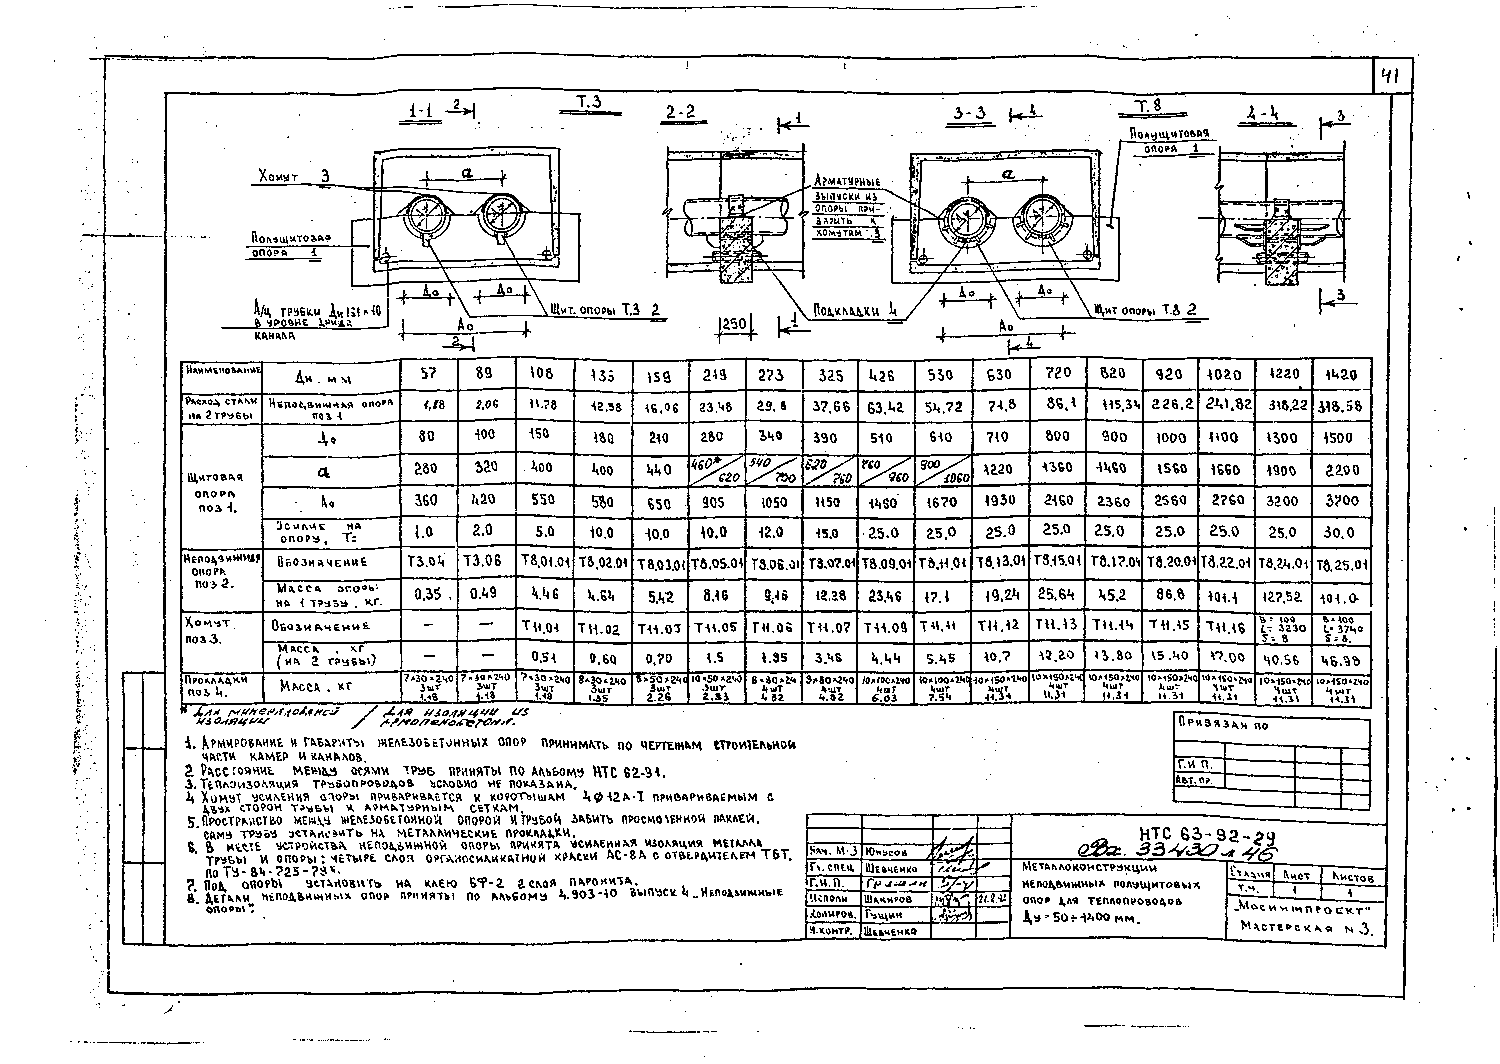 41
1-1 2 Т.3 2-2 1 3-3 4 Т.8 4-4 3
Полущитовая
опора 1
Хомут 3
а
а
Арматурные
выпуски из
опоры при-
варить к
хомутам 3
Полущитовая
опора 1
До До До До
А/ц трубки
в уровне днища
канала
Щит. опоры Т.3 2
Подкладки 4
Щит опоры Т.8 2
Ао Ао
2 250 1 4 3
Наименование Дн. мм 57 89 108 133 159 219 273 325 426 530 630 720 820 920 1020 1220 1420
Расход стали на 2 трубы Неподвижная опора поз 1 1,88 2,06 11.78 12.38 16.06 23.48 29.8 37.66 63.42 54.72 71.8 86.1 115,34 226.2 241.82 318,22 318.58
Щитовая опора поз 1.
До 80 100 150 180 210 280 340 390 510 610 710 800 900 1000 1100 1300 1500
а 280 320 400 400 440 460*/620 540/700 620/760 760/960 900/1060 1220 1360 1460 1560 1660 1900 2200
Ао 360 420 550 580 650 905 1050 1150 1460 1670 1930 2160 2360 2560 2760 3200 3700
Усилие на опору, Т= 1.0 2.0 5.0 10.0 10.0 10.0 12.0 15.0 25.0 25.0 25.0 25.0 25.0 25.0 25.0 25.0 30.0
Неподвижная опора поз 2.
Обозначение Т3.04 Т3.06 Т8.01.01 Т8.02.01 Т8.03.01 Т8.05.01 Т8.06.01 Т8.07.01 Т8.09.01 Т8.11.01 Т8.13.01 Т8.15.01 Т8.17.01 Т8.20.01 Т8.22.01 Т8.24.01 Т8.25.01
Масса опоры на 1 трубу. кг. 0,35 0.49 4.46 4.64 5,42 8.16 9,16 12.28 23.46 17.1 19,24 25,64 45.2 86,8 101.1 127,52 101.0
Хомут поз 3.
Обозначение — — Т11.01 Т11.02 Т11.03 Т11.05 Т11.06 Т11.07 Т11.09 Т11.11 Т11.12 Т11.13 Т11.14 Т11.15 Т11.16 В=100 L=3230 S=8 В=100 L=3740 S=8.
Масса, кг (на 2 трубы) — — 0,51 0,60 0,70 1.5 1.95 3.46 4.44 5.45 10.7 12.20 13.80 15.40 17.00 40.56 46.98
Прокладки поз 4. Масса, кг 7×30×240 3шт 1.18 7×30×240 3шт 1.18 7×30×240 3шт 1.18 8×30×240 3шт 1.35 8×50×240 3шт 2.26 10×50×240 3шт 2.83 8×80×240 4шт 4.82 8×80×240 4шт 4.82 10×100×240 4шт 6.03 10×100×240 4шт 7.54 10×150×240 4шт 11.31 10×150×240 4шт 11.31 10×150×240 4шт 11.31 10×150×240 4шт 11.31 10×150×240 4шт 11.31 10×150×240 4шт 11.31 10×150×240 4шт 11.31
* Для минераловатной изоляции / Для изоляции из армопенобетона.
1. Армирование и габариты железобетонных опор принимать по чертежам строительной
части камер и каналов.
2. Расстояние между осями труб приняты по альбому НТС 62-91.
3. Теплоизоляция трубопроводов условно не показана.
4 Хомут усиления опоры приваривается к коротышам 4ф12А-I привариваемым с
двух сторон трубы к арматурным сеткам.
5. Пространство между железобетонной опорой и трубой забить просмоленной паклей,
саму трубу установить на металлические прокладки.
6. В месте устройства неподвижной опоры принята усиленная изоляция металла
трубы и опоры: четыре слоя органосиликатной краски АС-8А с отвердителем ТБТ.
по ТУ-84-725-78*.
7. Под опоры установить на клею БФ-2 2 слоя паронита.
8. Детали неподвижных опор приняты по альбому 4.903-10 выпуск 4 „Неподвижные
опоры".
Привязан по
Г.И П.
Авт. пр.
Нач. М-3 Юнусов
Гл. спец Шевченко
Г.И.П.
Исполн Шакиров
Копиров. Гущин
Н.контр. Шевченко
НТС 63-92-29
Вх. 33430 л 46
Металлоконструкции
неподвижных полущитовых
опор для теплопроводов
Ду=50÷1400 мм.
Стадия Лист Листов
Т.Ч. 1 1
„Мосинжпроект"
Мастерская N 3.